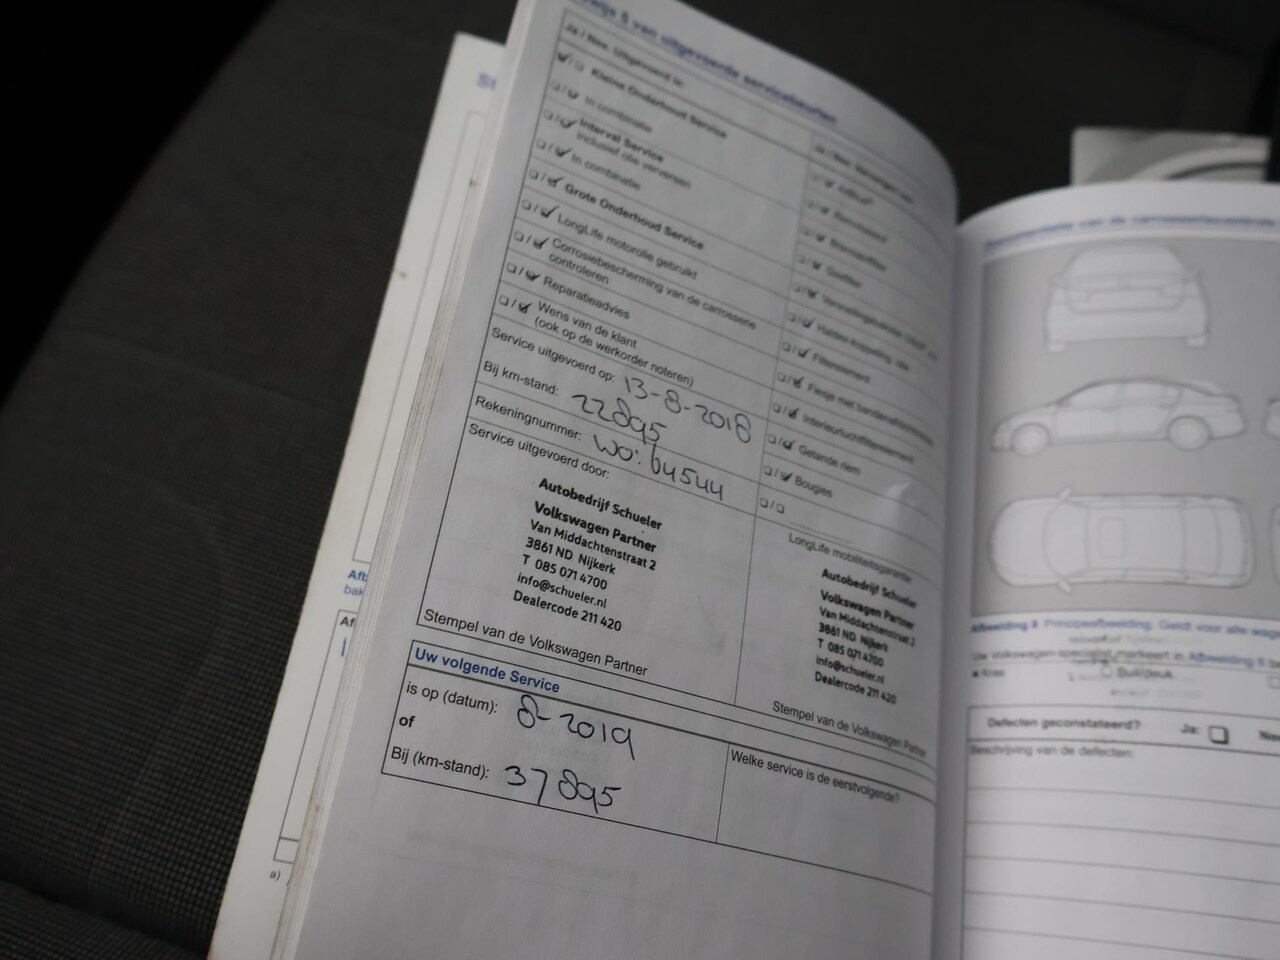 van uitgevoerde servicebeurten
Ja / Nee, Uitgevoerd is:
Kleine Onderhoud Service
In combinatie
Interval Service
inclusief olie verversen
In combinatie
Grote Onderhoud Service
LongLife motorolie gebruikt
Corrosiebescherming van de carrosserie
controleren
Reparatieadvies
Wens van de klant
(ook op de werkorder noteren)
Service uitgevoerd op: 13-8-2018
Bij km-stand: 22895
Rekeningnummer: WO: 64544
Service uitgevoerd door:
Autobedrijf Schueler
Volkswagen Partner
Van Middachtenstraat 2
3861 ND Nijkerk
T 085 071 4700
info@schueler.nl
Dealercode 211 420
Stempel van de Volkswagen Partner
Filterelement
Interieurluchtfilterelement
Getande riem
Bougies
LongLife mobiliteitsgarantie
Autobedrijf Schueler
Volkswagen Partner
Van Middachtenstraat 2
3861 ND Nijkerk
T 085 071 4700
info@schueler.nl
Dealercode 211 420
Stempel van de Volkswagen Partner
Uw volgende Service
is op (datum): 8-2019
of
Bij (km-stand): 37895
Welke service is de eerstvolgende?
Afbeelding 8 Principeafbeelding. Geldt voor alle
Uw Volkswagen-specialist markeert in Afbeelding 8
Kras
Buil/deuk
Defecten geconstateerd? Ja:
Beschrijving van de defecten:
a)